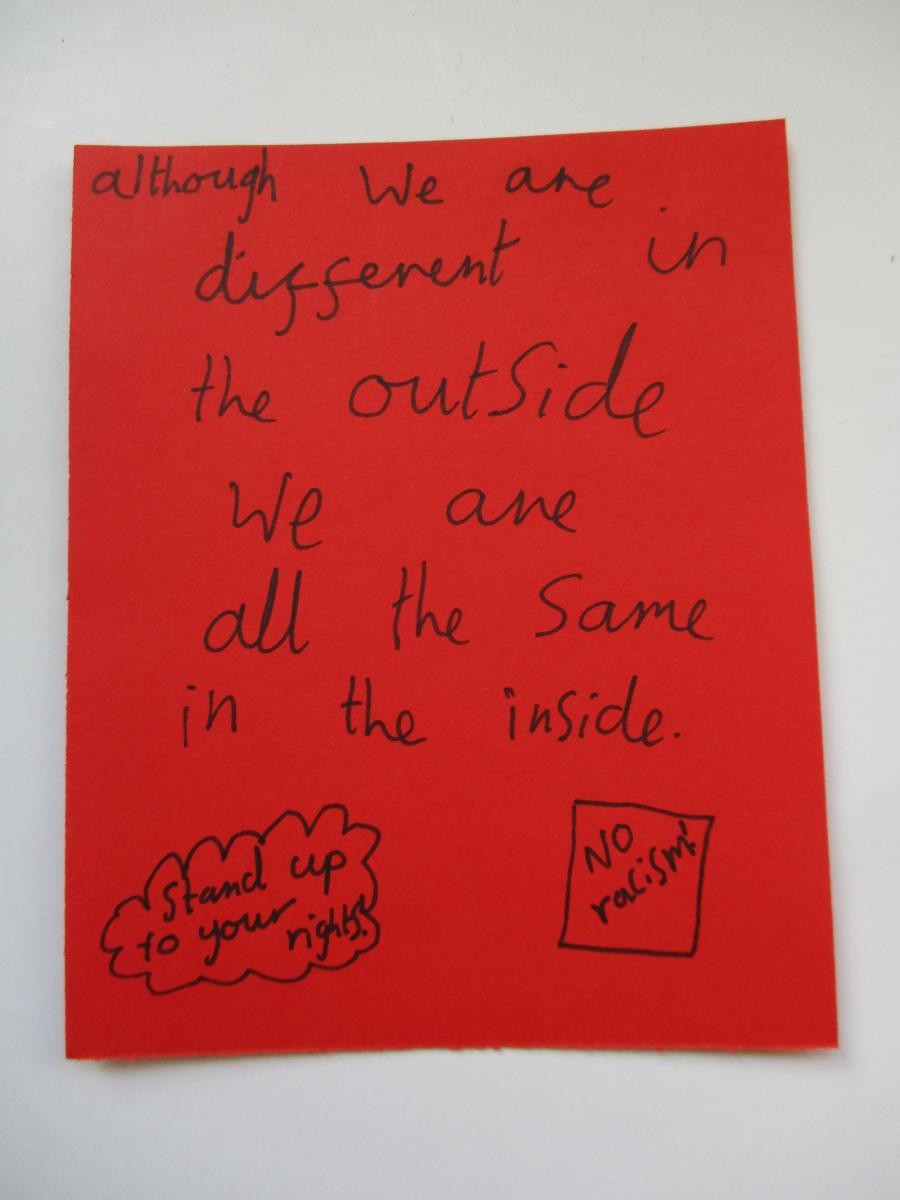 although We are
different in
the outside
We are
all the same
in the inside.
Stand up
to your rights!
NO
racism!